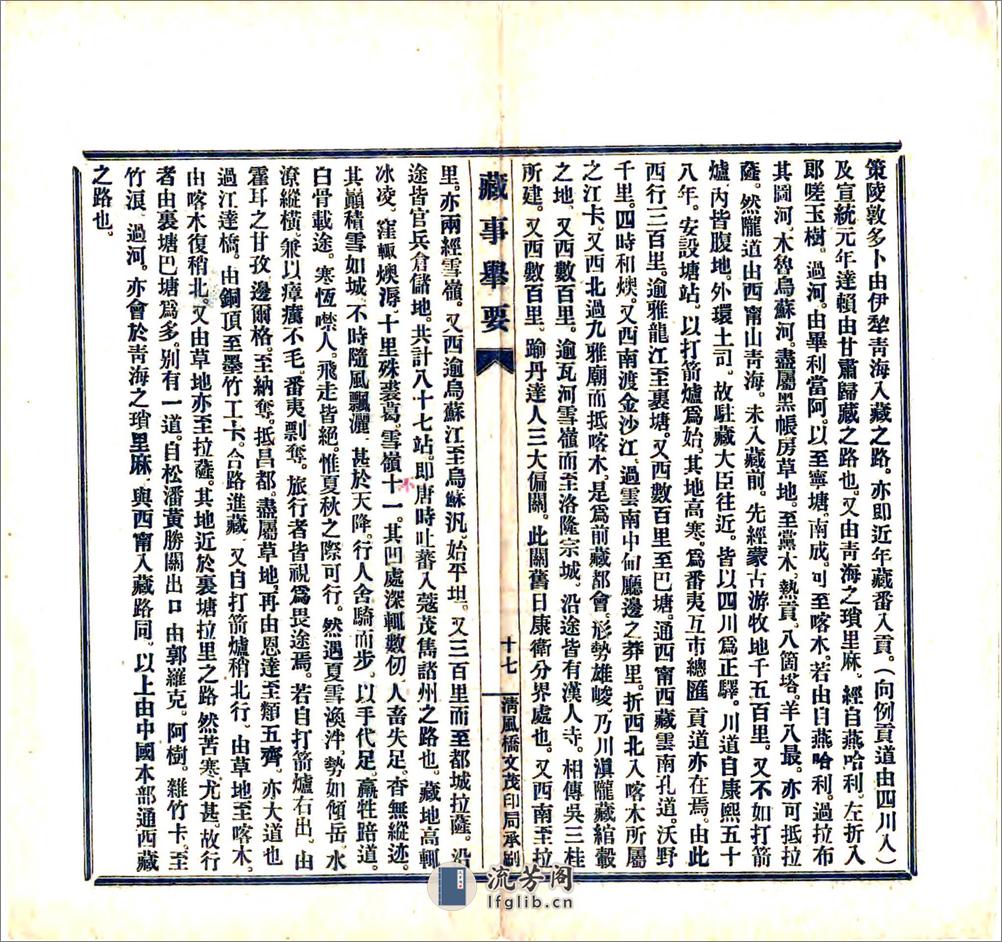 策陵敦多卜由伊犂靑海入藏之路。亦即近年藏番入貢。（向例貢道由四川入）
及宣統元年達賴由甘肅歸藏之路也。又由靑海之瑣里麻。經自燕哈利。左折入
郞嗟玉樹。過河。由畢利當阿。以至寧塘。南成。可至喀木。若由自燕哈利。過拉布
其圖河。木魯烏蘇河。盡屬黑帳房草地。至黨木。熱貢。八箇塔。羊八最。亦可抵拉
薩。然隴道由西甯山靑海。未入藏前。先經蒙古游牧地千五百里。又不如打箭
爐。內皆腹地。外環土司。故駐藏大臣往近。皆以四川爲正驛。川道自康熙五十
八年。安設塘站。以打箭爐爲始。其地高寒。爲番夷互市總匯。貢道亦在焉。由此
西行三百里。逾雅龍江至裏塘。又西數百里至巴塘。通西甯西藏雲南孔道。沃野
千里。四時和煗。又西南渡金沙江。過雲南中甸廳邊之莽里。折西北入喀木所屬
之江卡。又西北過九雅廟而抵喀木。是爲前藏都會。形勢雄峻。乃川滇隴藏綰轂
之地。又西數百里。逾瓦河雪嶺而至洛隆宗城。沿途皆有漢人寺。相傳吳三桂
所建。又西數百里。踰丹達人三大偏關。此關舊日康衛分界處也。又西南至拉
藏事舉要
十七
淸風橋文茂印局承刷
里。亦兩經雪嶺。又西逾烏蘇江至烏蘇汛。始平坦。又三百里而至都城拉薩。沿
途皆官兵倉儲地。共計八十七站。即唐時吐蕃入蔻茂雋諸州之路也。藏地高輒
冰凌。窪輒燠溽。十里殊裘葛。雪嶺十一。其凹處深輒數仞。人畜失足。杳無縱迹。
其巔積雪如城。不時隨風飄灑。甚於天降。行人舍騎而步。以手代足。羸牲踣道。
白骨載途。寒恆噤人。飛走皆絕。惟夏秋之際可行。然遇夏雪渙泮。勢如傾岳。水
潦縱橫。兼以瘴癘不毛。番夷剽奪。旅行者皆視爲畏途焉。若自打箭爐右出。由
霍耳之甘孜。邊爾格。至納奪。抵昌都。盡屬草地。再由恩達至類五齊。亦大道也
過江達橋。由銅頂至墨竹工卡。合路進藏。又自打箭爐稍北行。由草地至喀木。
由喀木復稍北。又由草地亦至拉薩。其地近於裏塘拉里之路。然苦寒尤甚。故行
者由裏塘巴塘爲多。別有一道。自松潘黃勝關出口。由郭羅克。阿樹。雜竹卡。至
竹浪。過河。亦會於靑海之瑣里麻。與西甯入藏路同。以上由中國本部通西藏
之路也。
流芳阁
lfglib.cn